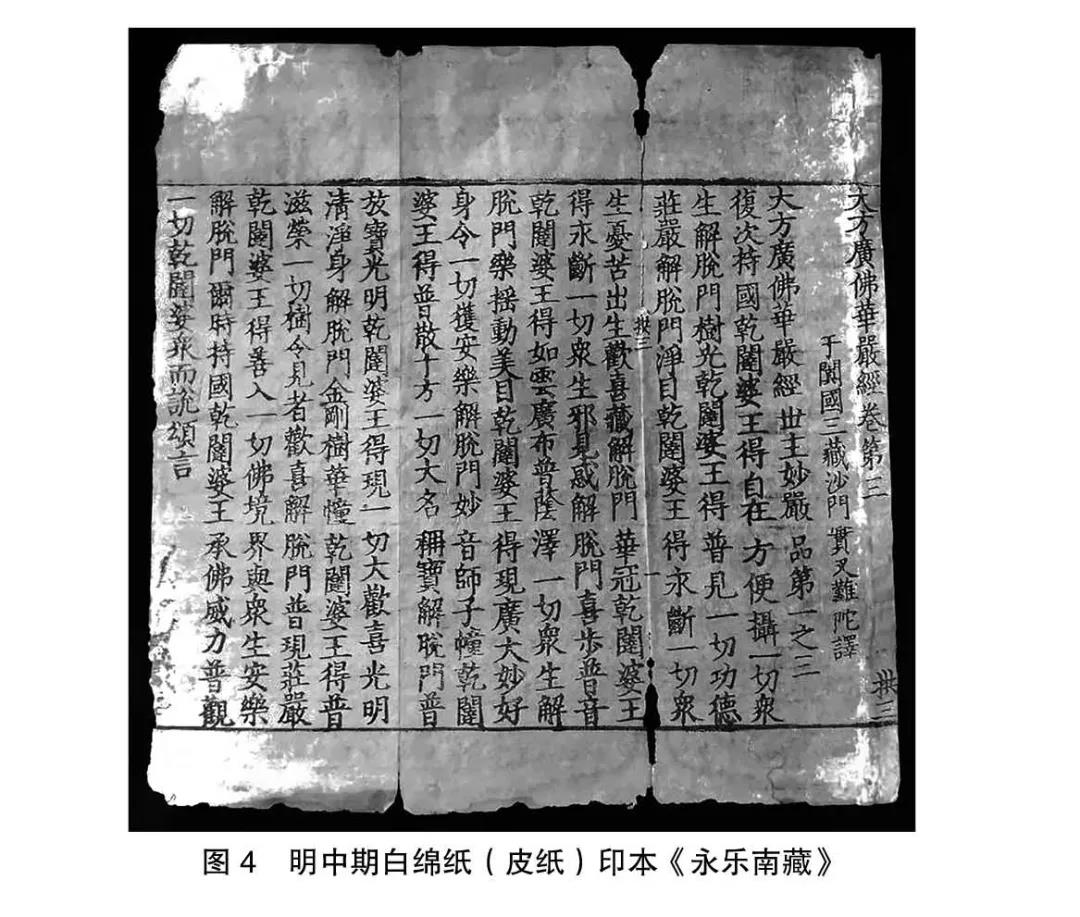 大方廣佛華嚴經卷第三 拱三
于闐國三藏沙門 實叉難陀譯
大方廣佛華嚴經世主妙嚴品第一之三
復次持國乾闥婆王得自在方便攝一切衆
生解脫門樹光乾闥婆王得普見一切功德
莊嚴解脫門淨目乾闥婆王得永斷一切衆
拱三 一
生憂苦出生歡喜藏解脫門華冠乾闥婆王
得永斷一切衆生邪見惑解脫門喜步普音
乾闥婆王得如雲廣布普蔭澤一切衆生解
脫門樂搖動美目乾闥婆王得現廣大妙好
身令一切獲安樂解脫門妙音師子幢乾闥
婆王得普散十方一切大名稱寶解脫門普
放寶光明乾闥婆王得現一切大歡喜光明
清淨身解脫門金剛樹華幢乾闥婆王得普
滋榮一切樹令見者歡喜解脫門普現莊嚴
乾闥婆王得善入一切佛境界與衆生安樂
解脫門爾時持國乾闥婆王承佛威力普觀
一切乾闥婆衆而說頌言
图 4 明中期白绵纸（皮纸）印本《永乐南藏》